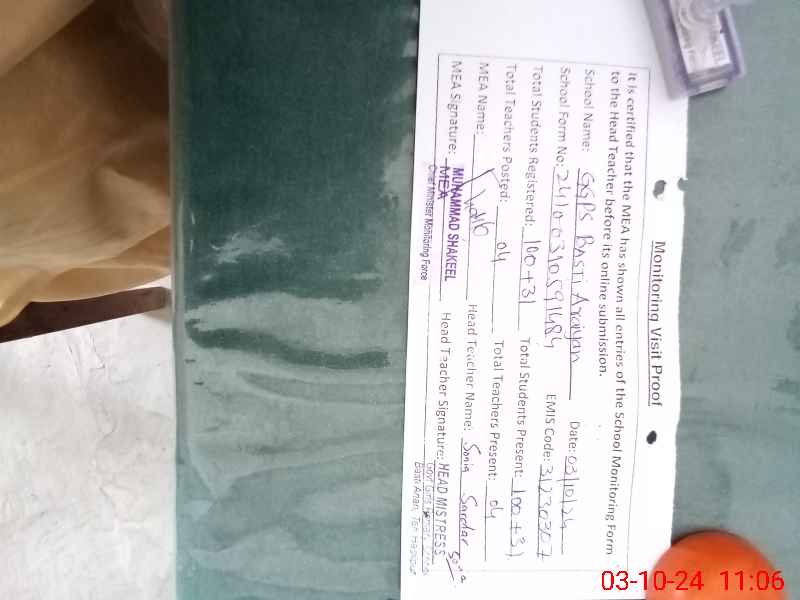 Monitoring Visit Proof
It is certified that the MEA has shown all entries of the School Monitoring Form
to the Head Teacher before its online submission.
School Name: GGPS BASTI Arayan Date: 03/10/24
School Form No: 24100310591484 EMIS Code: 31230307
Total Students Registered: 100+31 Total Students Present: 100+31
Total Teachers Posted: 04 Total Teachers Present: 04
MEA Name: Head Teacher Name: Sonia Sardar
MEA Signature: MUHAMMAD SHAKEEL Head Teacher Signature: HEAD MISTRESS
MEA
Chief Minister Monitoring Force
Govt Girls Primary School
Basti Arian,
03-10-24 11:06